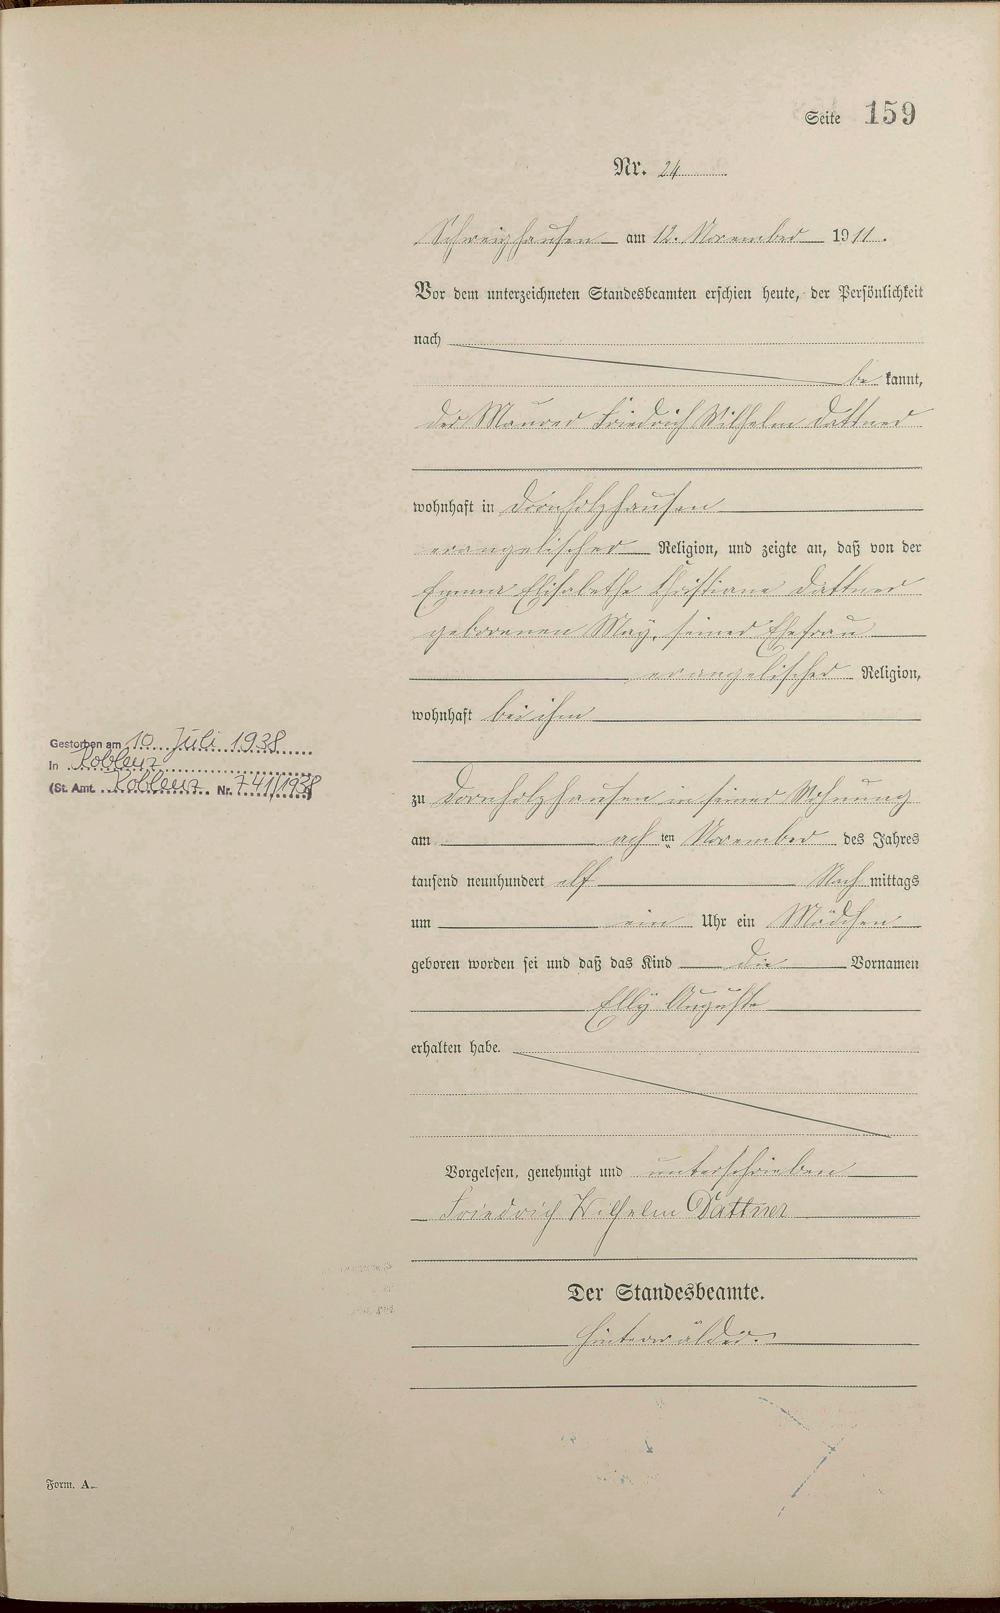 Seite 159
Nr. 24
Schweighausen am 12. November 1911.
Vor dem unterzeichneten Standesbeamten erschien heute, der Persönlichkeit
nach
be kannt,
der Maurer Friedrich Wilhelm Dattner
wohnhaft in Dornholzhausen
evangelischer Religion, und zeigte an, daß von der
Emma Elisabethe Christiane Dattner
geborenen May, seiner Ehefrau
evangelischer Religion,
wohnhaft bei ihm
Gestorben am 10. Juli 1938
In Koblenz
(St. Amt. Koblenz Nr. 741/1938
zu Dornholzhausen in seiner Wohnung
am ach ten November des Jahres
tausend neunhundert elf Nach mittags
um ein Uhr ein Mädchen
geboren worden sei und daß das Kind die Vornamen
Elly Auguste
erhalten habe.
Vorgelesen, genehmigt und unterschrieben
Friedrich Wilhelm Dattner
Der Standesbeamte.
Hinterwälder.
Form. A.